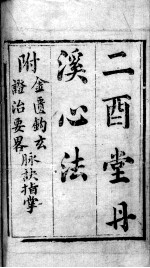 二酉堂丹
溪心法
附
金匱鈎玄
脉訣指掌
證治要畧